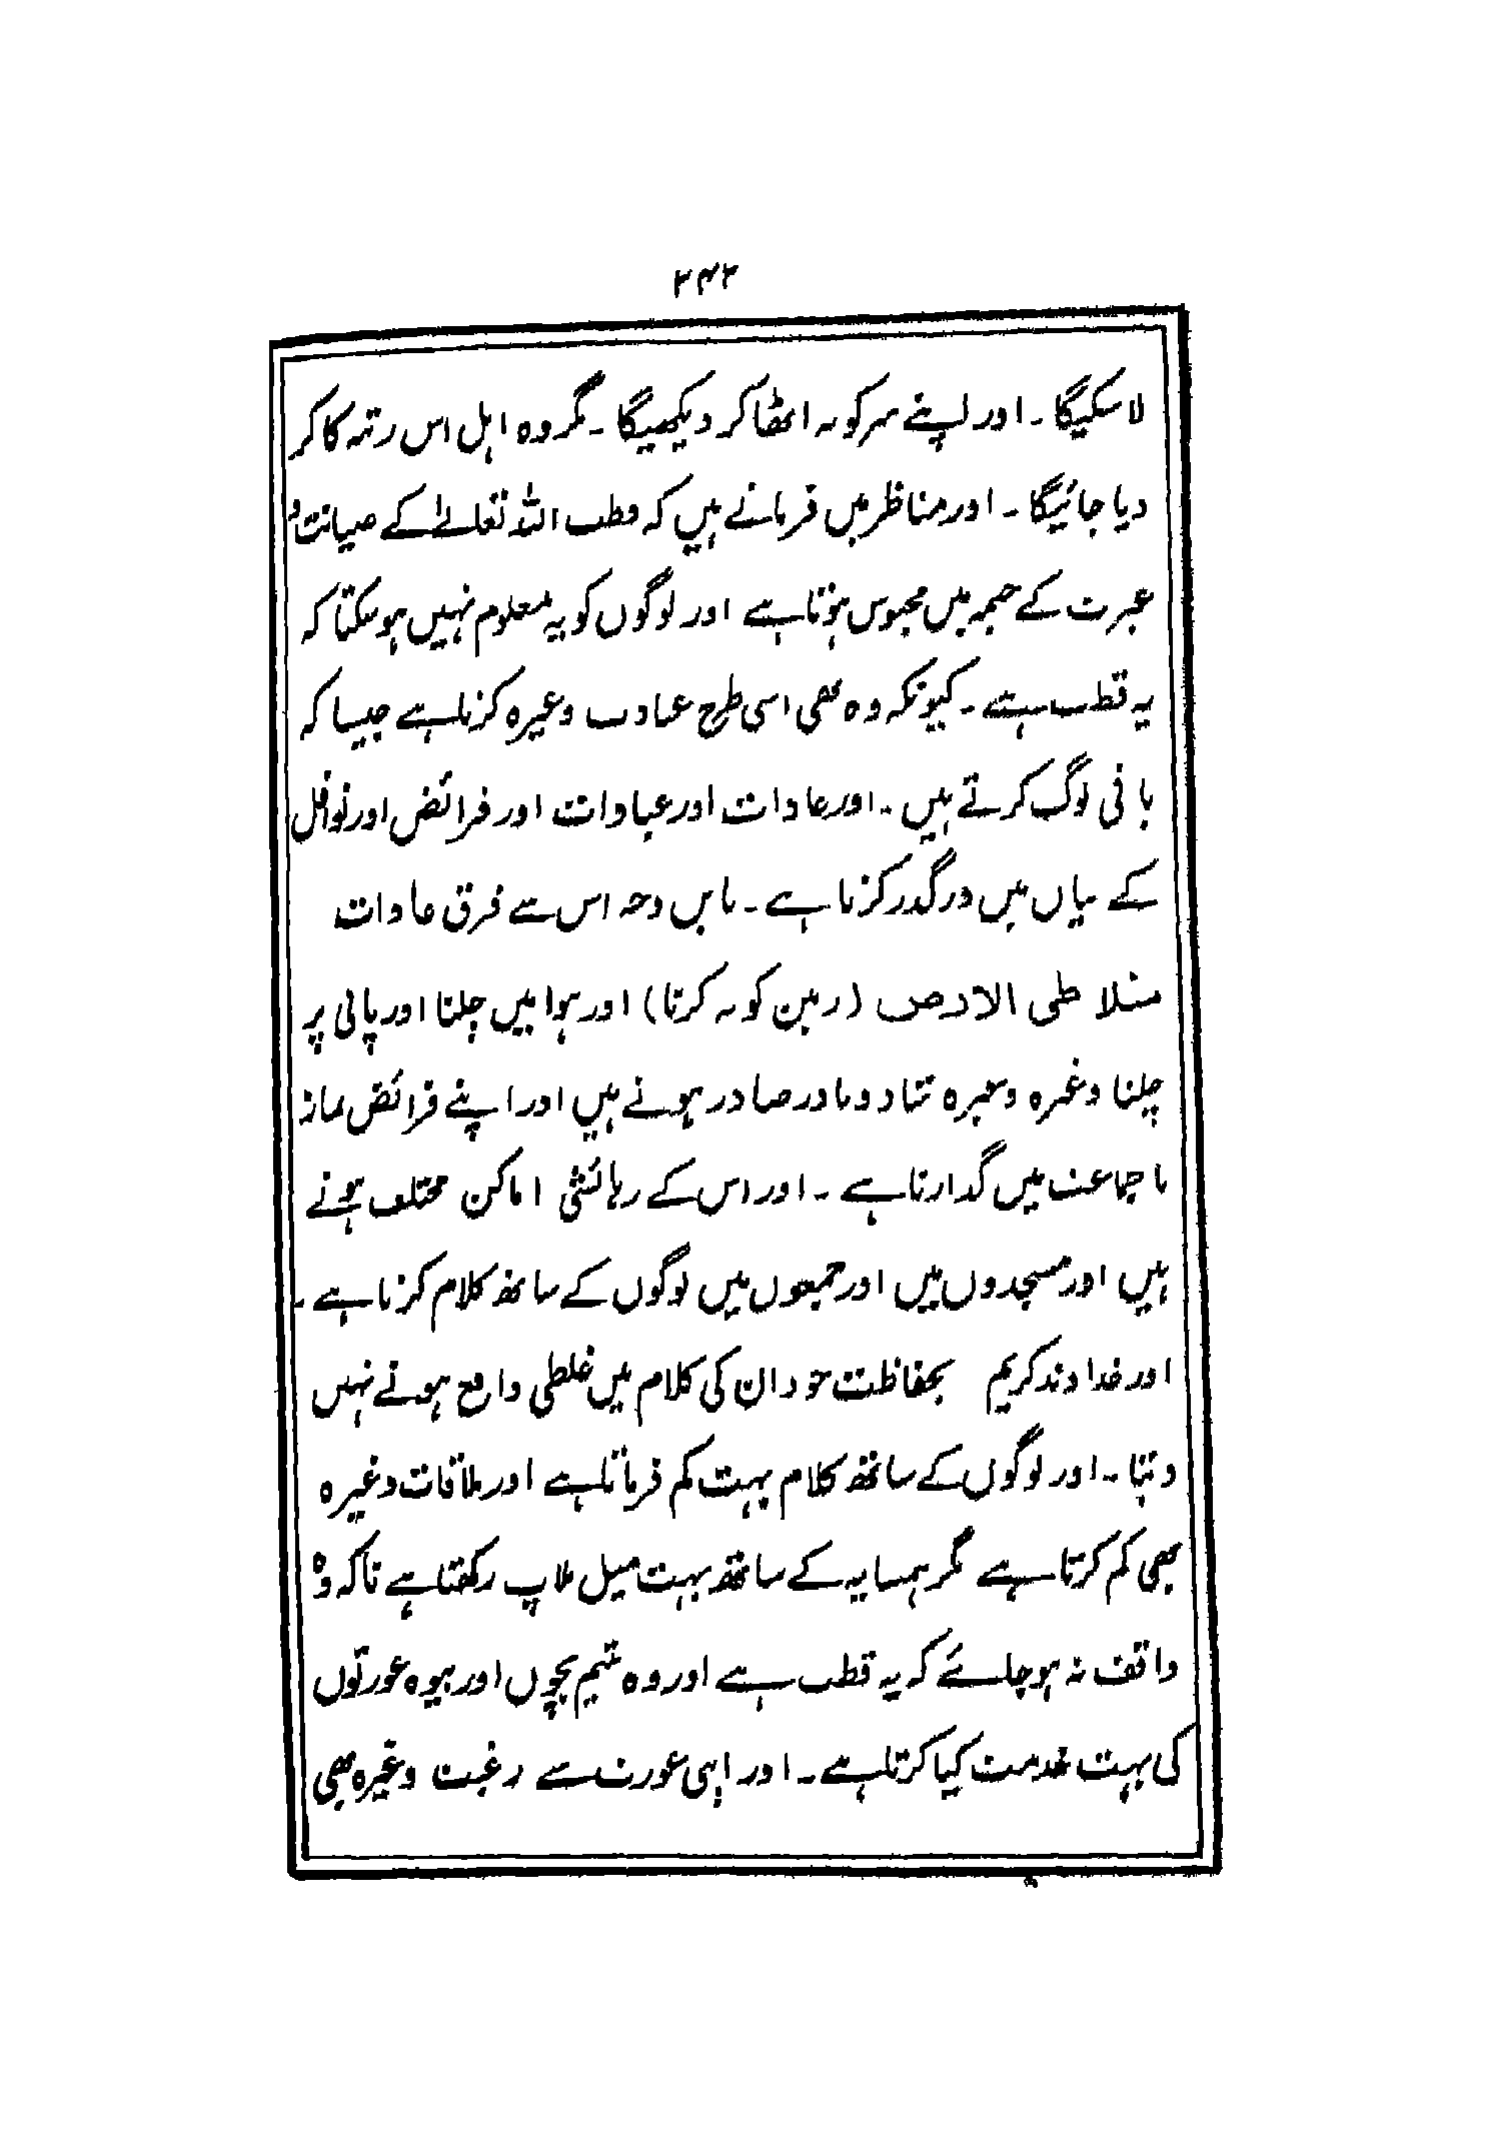 ۲۴۲
لا سکیگا ۔ اور اپنے سر کو نہ اٹھا کر دیکھیگا ۔ مگر وہ اہل اس رتبہ کا کر
دیا جائیگا ۔ اور مناظر میں فرماتے ہیں کہ قطب اللہ تعالےٰ کے صیانت و
عبرت کے خیمہ میں محبوس ہوتا ہے اور لوگوں کو یہ معلوم نہیں ہو سکتا کہ
یہ قطب ہے ۔ کیونکہ وہ بھی اسی طرح عبادت وغیرہ کرتا ہے جیسا کہ
باقی لوگ کرتے ہیں ۔ اور عادات اور عبادات اور فرائض اور نوافل
کے بیان میں درگذر کرتا ہے ۔ بایں وجہ اس سے فرق عادات
مثلا طی الارض (زمین کو نہ کرنا) اور ہوا میں چلنا اور پانی پر
چلنا وغیرہ وغیرہ شاذ و نادر صادر ہوتے ہیں اور اپنے فرائض نماز
با جماعت میں گذارتا ہے ۔ اور اس کے رہائشی اماکن مختلف ہوتے
ہیں اور مسجدوں میں اور جمعوں میں لوگوں کے ساتھ کلام کرتا ہے ۔
اور خداوند کریم بحفاظت خود ان کی کلام میں غلطی واقع ہونے نہیں
دیتا ۔ اور لوگوں کے ساتھ کلام بہت کم فرماتا ہے اور ملاقات وغیرہ
بھی کم کرتا ہے مگر ہمسایہ کے ساتھ بہت میل ملاپ رکھتا ہے تاکہ وہ
واقف نہ ہو جائے کہ یہ قطب ہے اور وہ یتیم بچوں اور بیوہ عورتوں
کی بہت خدمت کیا کرتا ہے ۔ اور اپنی عورت سے رغبت وغیرہ بھی